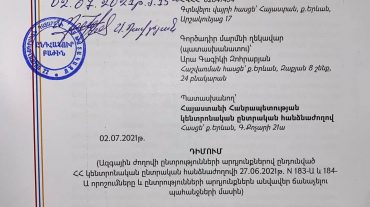 02.07.2021թ.
Գտնվելու վայրի հասցեն՝ Հայաստան, ք.Երևան,
Արշակունյաց 17
ԸՆԴՀԱՆՈՒՐ
ԲԱԺԻՆ
Գործադիր մարմնի ղեկավար
(պատասխանատու)՝
Արա Գագիկի Զոհրաբյան
Հաշվառման հասցե՝ ք.Երևան, Զաքյան 8 շենք,
24 բնակարան
Պատասխանող՝
Հայաստանի Հանրապետության
կենտրոնական ընտրական հանձնաժողով
Հասցեն՝ ք.Երևան, Գ.Քոչարի 21ա
02.07.2021թ.
ԴԻՄՈՒՄ
(Ազգային ժողովի ընտրությունների արդյունքներով ընդունված
ՀՀ կենտրոնական ընտրական հանձնաժողովի 27.06.2021թ. N 183-Ա և 184-
Ա որոշումները և ընտրությունների արդյունքներն անվավեր ճանաչելու
պահանջների մասին)